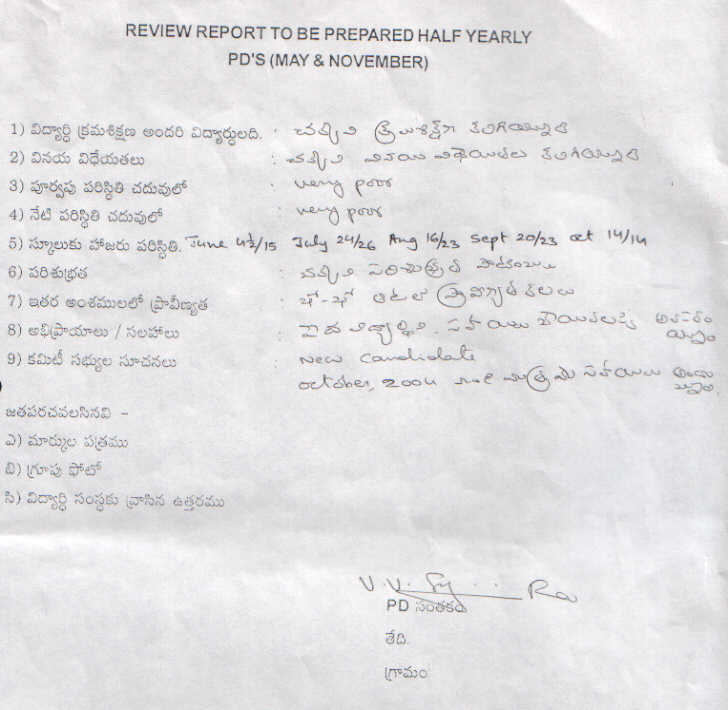 REVIEW REPORT TO BE PREPARED HALF YEARLY
PD'S (MAY & NOVEMBER)
1) విద్యార్ధి క్రమశిక్షణ అందరి విద్యార్ధులది. : చక్కని క్రమశిక్షణ కలిగియున్నది
2) వినయ విధేయతలు : చక్కని వినయ విధేయతలు కలిగియున్నది
3) పూర్వపు పరిస్థితి చదువులో : very poor
4) నేటి పరిస్థితి చదువులో : very poor
5) స్కూలుకు హాజరు పరిస్థితి. June 4½/15 July 24/26 Aug 16/23 Sept 20/23 oct 14/14
6) పరిశుభ్రత : చక్కని పరిశుభ్రత
7) ఇతర అంశములలో ప్రావీణ్యత : ఖో-ఖో ఆటలో ప్రావీణ్యత కలదు
8) అభిప్రాయాలు / సలహాలు : పేద విద్యార్ధిని. సహాయం
9) కమిటీ సభ్యుల సూచనలు : New Candidate
october, 2004 మాత్రమే సహాయం
జతపరచవలసినవి -
ఎ) మార్కుల పత్రము
బి) గ్రూపు ఫోటో
సి) విద్యార్ధి సంస్థకు వ్రాసిన ఉత్తరము
PD సంతకం
తేది.
గ్రామం